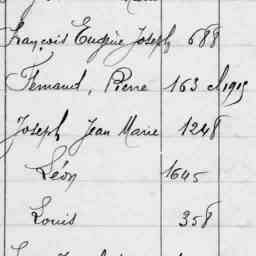 François Eugène Joseph 688
Fernand, Pierre 163 cl 1915
Joseph Jean Marie 1248
Léon 1645
Louis 358